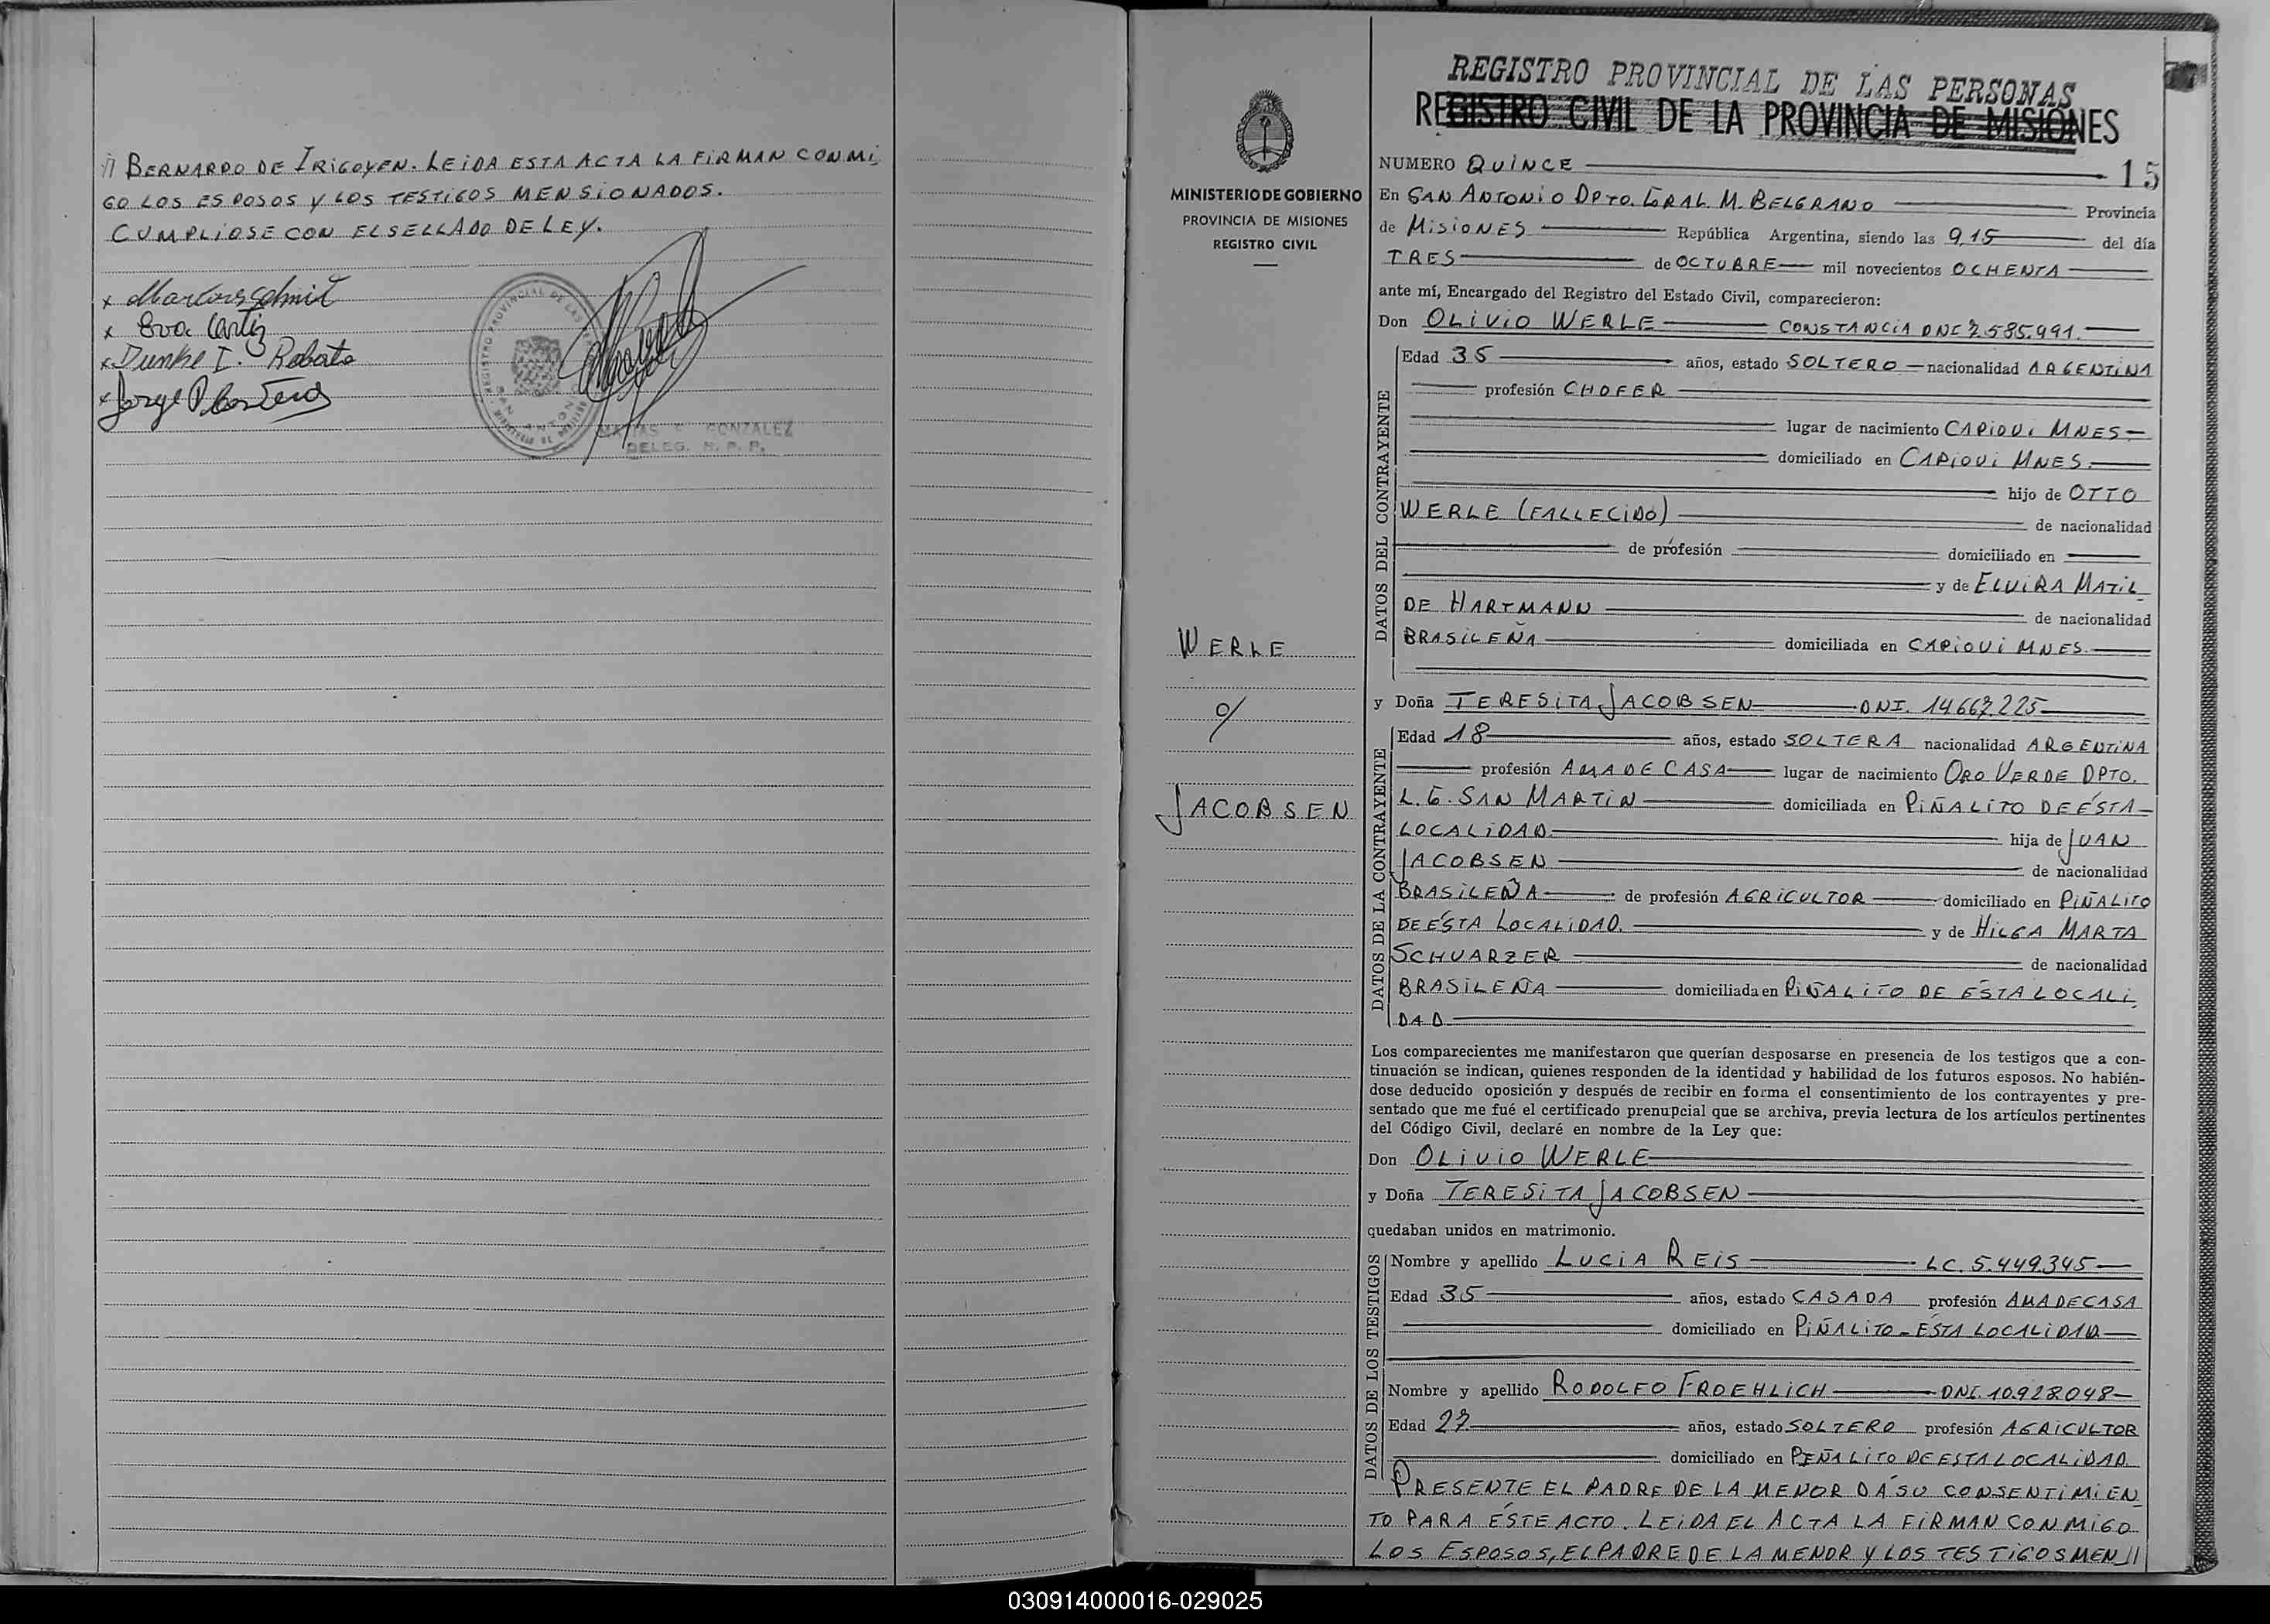 // BERNARDO DE IRIGOYEN. LEIDA ESTA ACTA LA FIRMAN CONMI
GO LOS ESPOSOS Y LOS TESTIGOS MENSIONADOS.
CUMPLIOSE CON EL SELLADO DE LEY.
x Marcos Schmit
x Eva
x Dunke I. Roberto
x Jorge
REGISTRO PROVINCIAL DE LAS
SAN ANTONIO
MATIAS F. GONZALEZ
DELEG. R. P. P.
MINISTERIO DE GOBIERNO
PROVINCIA DE MISIONES
REGISTRO CIVIL
WERLE
c/
JACOBSEN
REGISTRO PROVINCIAL DE LAS PERSONAS
REGISTRO CIVIL DE LA PROVINCIA DE MISIONES
NUMERO QUINCE 15
En SAN ANTONIO DPTO. GRAL. M. BELGRANO Provincia
de MISIONES República Argentina, siendo las 9,15 del día
TRES de OCTUBRE mil novecientos OCHENTA
ante mí, Encargado del Registro del Estado Civil, comparecieron:
Don OLIVIO WERLE CONSTANCIA DNI 7.585.991.
DATOS DEL CONTRAYENTE
Edad 35 años, estado SOLTERO nacionalidad ARGENTINA
profesión CHOFER
lugar de nacimiento CAPIOVI MNES
domiciliado en CAPIOVI MNES.
hijo de OTTO
WERLE (FALLECIDO) de nacionalidad
de profesión domiciliado en
y de ELVIRA MATIL
DE HARTMANN de nacionalidad
BRASILEÑA domiciliada en CAPIOVI MNES.
y Doña TERESITA JACOBSEN DNI. 14.667.225
DATOS DE LA CONTRAYENTE
Edad 18 años, estado SOLTERA nacionalidad ARGENTINA
profesión AMA DE CASA lugar de nacimiento ORO VERDE DPTO.
L. G. SAN MARTIN domiciliada en PIÑALITO DE ÉSTA
LOCALIDAD hija de JUAN
JACOBSEN de nacionalidad
BRASILEÑA de profesión AGRICULTOR domiciliado en PIÑALITO
DE ÉSTA LOCALIDAD. y de HILGA MARTA
SCHVARZER de nacionalidad
BRASILEÑA domiciliada en PIÑALITO DE ÉSTA LOCALI
DAD
Los comparecientes me manifestaron que querían desposarse en presencia de los testigos que a con-
tinuación se indican, quienes responden de la identidad y habilidad de los futuros esposos. No habién-
dose deducido oposición y después de recibir en forma el consentimiento de los contrayentes y pre-
sentado que me fué el certificado prenupcial que se archiva, previa lectura de los artículos pertinentes
del Código Civil, declaré en nombre de la Ley que:
Don OLIVIO WERLE
y Doña TERESITA JACOBSEN
quedaban unidos en matrimonio.
DATOS DE LOS TESTIGOS
Nombre y apellido LUCIA REIS LC. 5.449.345
Edad 35 años, estado CASADA profesión AMA DE CASA
domiciliado en PIÑALITO - ÉSTA LOCALIDAD
Nombre y apellido RODOLFO FROEHLICH DNI. 10.928.048
Edad 27 años, estado SOLTERO profesión AGRICULTOR
domiciliado en PIÑALITO DE ESTA LOCALIDAD
PRESENTE EL PADRE DE LA MENOR DÁ SU CONSENTIMIEN
TO PARA ÉSTE ACTO. LEIDA EL ACTA LA FIRMAN CONMIGO
LOS ESPOSOS, EL PADRE DE LA MENOR Y LOS TESTIGOS MEN //
030914000016-029025